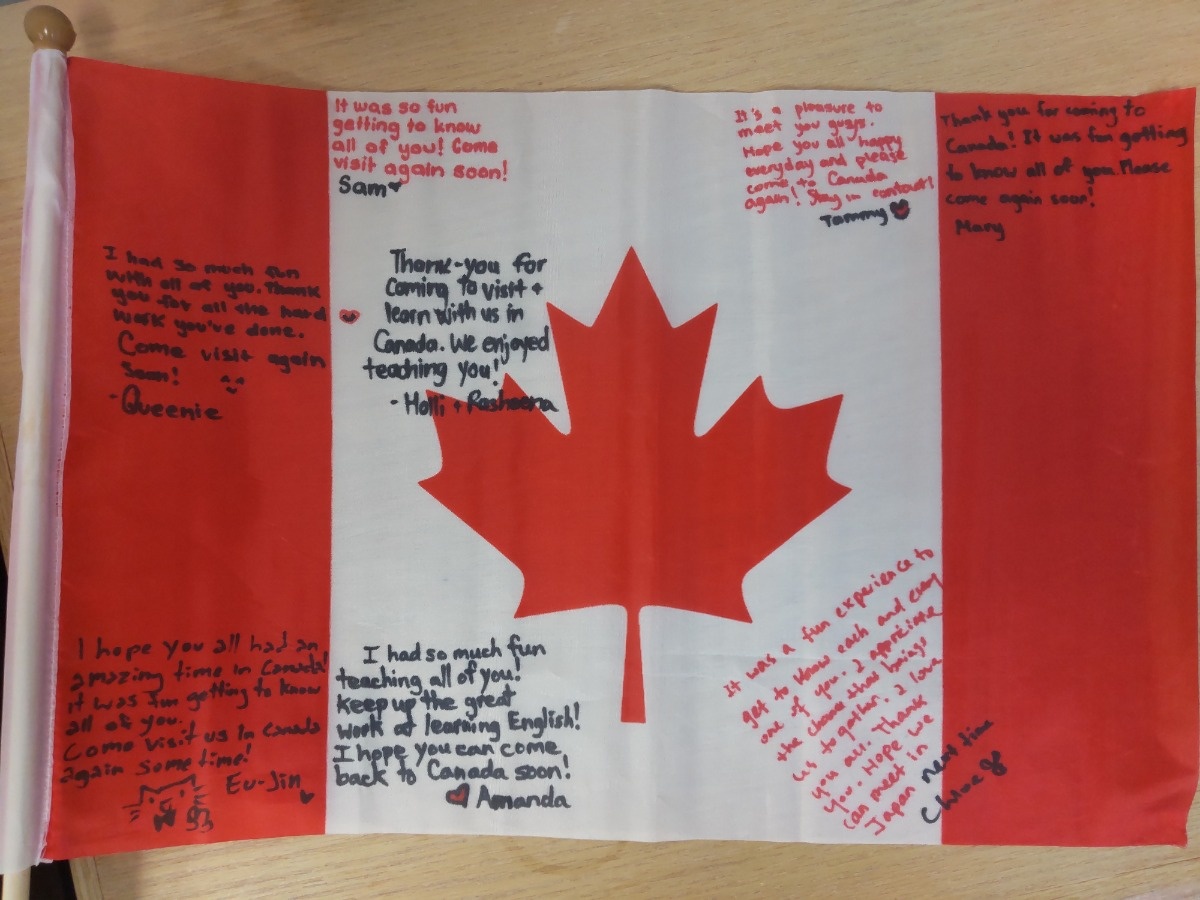 It was so fun
getting to know
all of you! Come
visit again soon!
Sam
It's a pleasure to
meet you guys.
Hope you all happy
everyday and please
come to Canada
again! Stay in contact!
Tammy
Thank you for coming to
Canada! It was fun getting
to know all of you. Please
come again soon!
Mary
I had so much fun
with all of you. Thank
you for all the hard
work you've done.
Come visit again
Soon!
- Queenie
Thank-you for
coming to visit +
learn with us in
Canada. We enjoyed
teaching you!
- Holli + Rasheena
I hope you all had an
amazing time in Canada!
it was fun getting to know
all of you.
Come visit us in Canada
again sometime!
Eu-Jin
I had so much fun
teaching all of you!
Keep up the great
work at learning English!
I hope you can come
back to Canada soon!
Amanda
It was a fun experience to
get to know each and every
one of you. I appreciate
the chance that brings
us together. I love
you all. Thank
you. Hope we
can meet in
Japan next time
Chloe